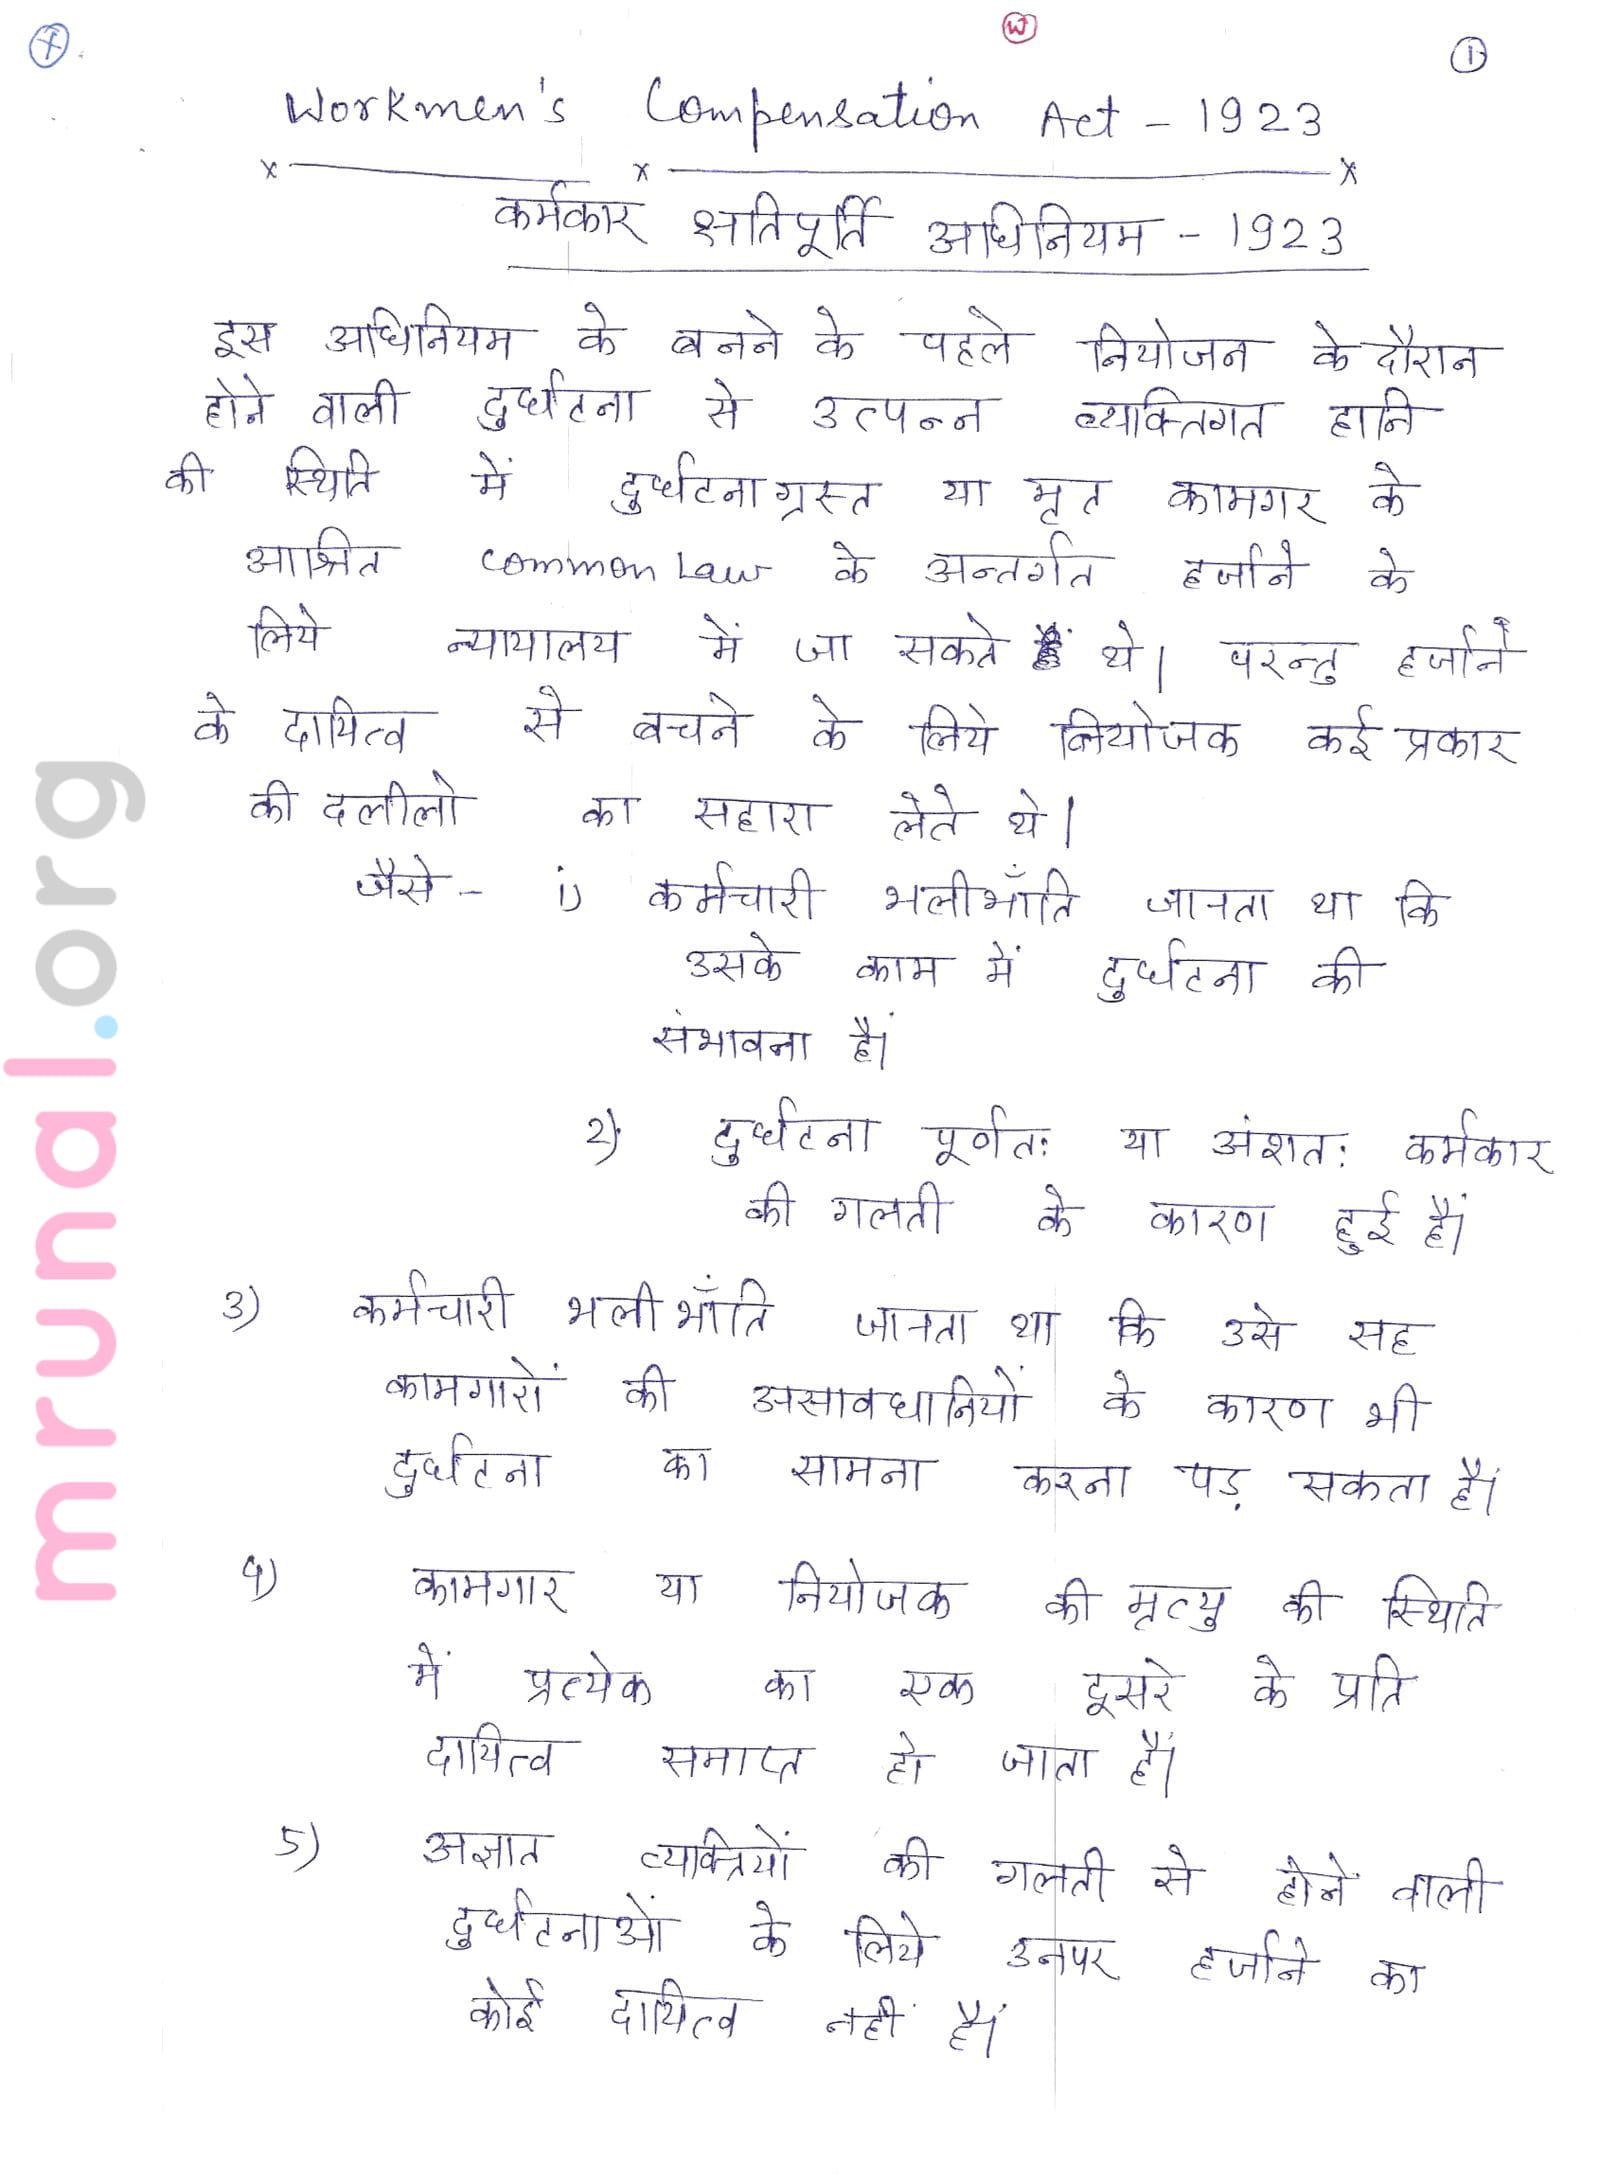 W
1
Workmen's Compensation Act - 1923
कर्मकार क्षतिपूर्ति अधिनियम - 1923
इस अधिनियम के बनने के पहले नियोजन के दौरान
होने वाली दुर्घटना से उत्पन्न व्यक्तिगत हानि
की स्थिति में दुर्घटनाग्रस्त या मृत कामगर के
आश्रित common Law के अन्तर्गत हर्जाने के
लिये न्यायालय में जा सकते थे। परन्तु हर्जाने
के दायित्व से बचने के लिये नियोजक कई प्रकार
की दलीलो का सहारा लेते थे।
जैसे - i) कर्मचारी भलीभाँति जानता था कि
उसके काम में दुर्घटना की
संभावना है।
2) दुर्घटना पूर्णतः या अंशतः कर्मकार
की गलती के कारण हुई है।
3) कर्मचारी भलीभाँति जानता था कि उसे सह
कामगारों की असावधानियों के कारण भी
दुर्घटना का सामना करना पड़ सकता है।
4) कामगार या नियोजक की मृत्यु की स्थिति
में प्रत्येक का एक दूसरे के प्रति
दायित्व समाप्त हो जाता है।
5) अज्ञात व्यक्तियों की गलती से होने वाली
दुर्घटनाओं के लिये उनपर हर्जाने का
कोई दायित्व नहीं है।
mrunal.org